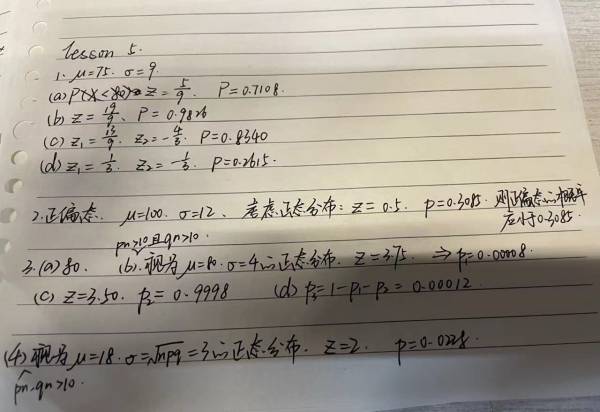 Lesson 5.
1. μ=75. σ=9.
(a) P(X<80) z=5/9. P=0.7108.
(b) z=19/9. P=0.9826
(c) z₁=13/9. z₂=-4/3. P=0.8340
(d) z₁=1/3. z₂=-1/3. P=0.2615.
2. 正偏态. μ=100. σ=12. 考虑正态分布: z=0.5. p=0.3085. 则正偏态的概率
应小于0.3085.
pn>10且qn>10.
3. (a) 80. (b). 视为μ=80. σ=4的正态分布. z=3.75. ⇒ p₁=0.00008.
(c) z=3.50. p₂=0.9998 (d) p₃=1-p₁-p₂=0.00012.
(4) 视为μ=18. σ=√npq=3的正态分布. z=2. p=0.0228.
pn. qn>10.